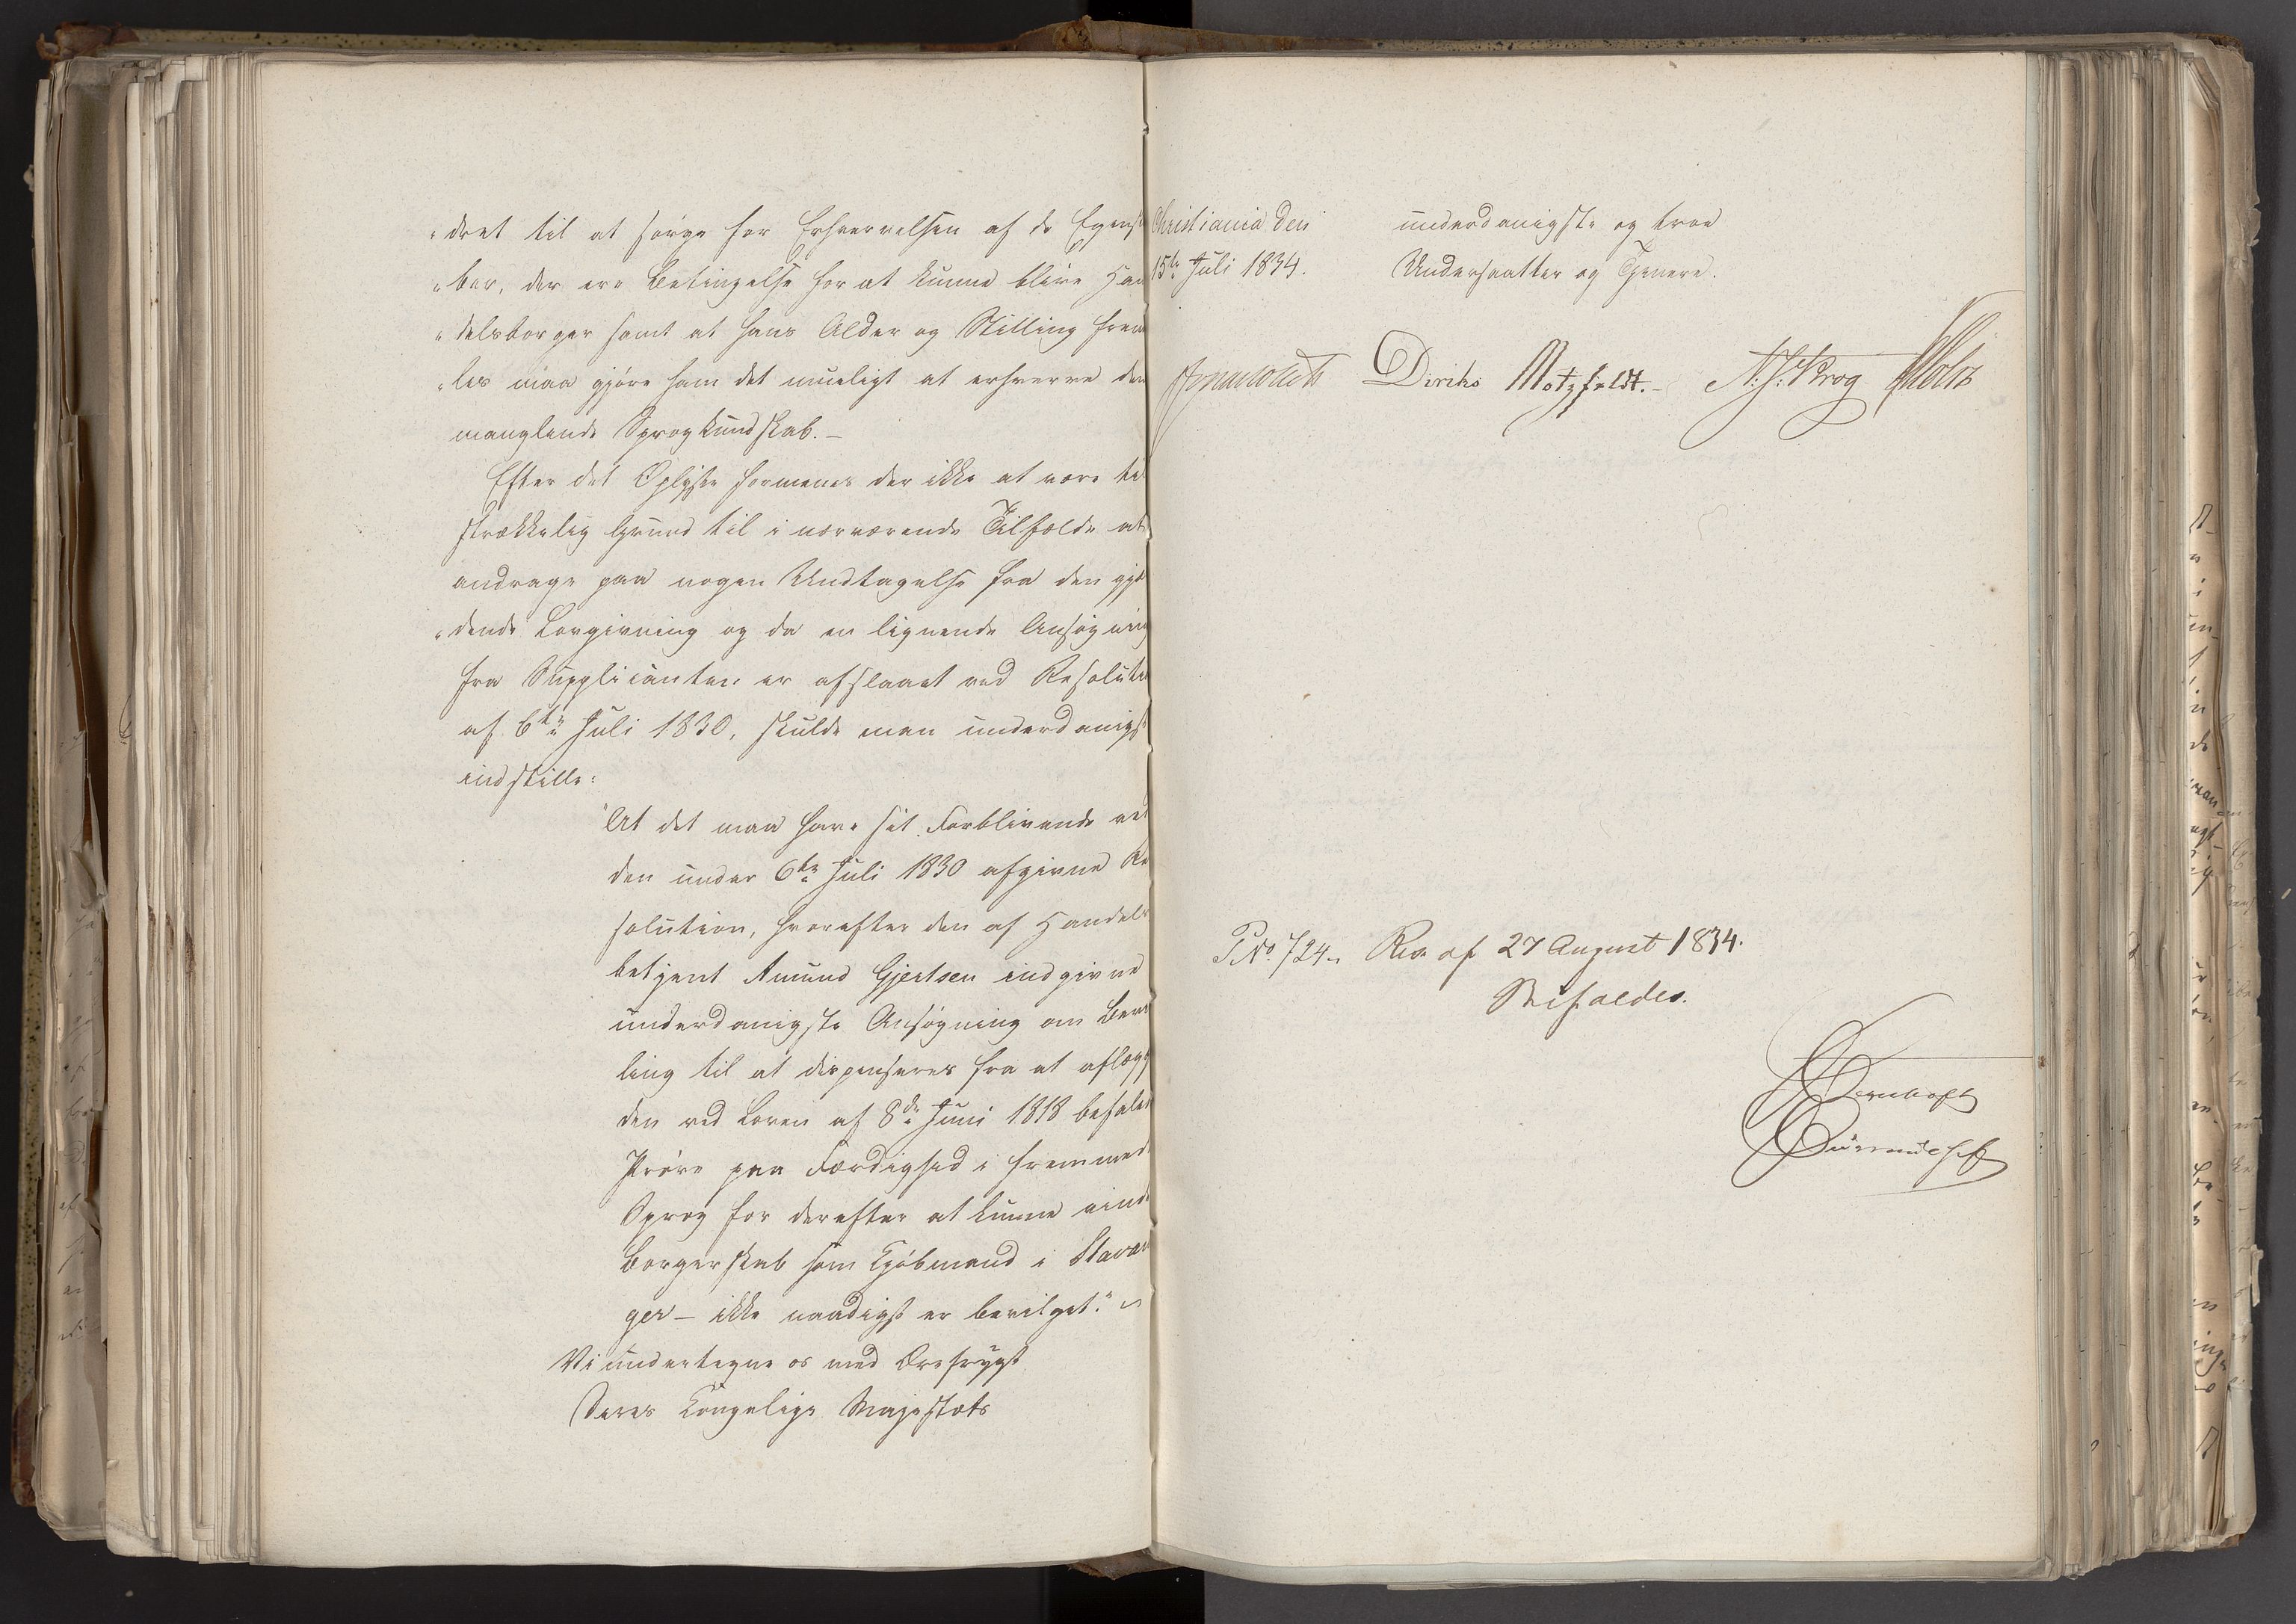 "dret til at sørge for Erhvervelsen af de Egenska
"ber, der ere Betingelse for at kunne blive Han
"delsborger samt at hans Alder og Stilling frem
"les maa gjøre ham det mueligt at erhverve den
manglende Sprogkundskab. –
Efter det Oplyste formenes der ikke at være til
strækkelig Grund til i nærværende Tilfælde at
andrage paa nogen Undtagelse fra den gjæl
"dende Lovgivning og da en lignende Ansøgning
fra Supplicanten er afslaaet ved Resolution
af 6te Juli 1830, skulde man underdanigst
indstille:
"At det maa have sit Forblivende ved
den under 6te Juli 1830 afgivne Re
solution, hvorefter den af Handels
betjent Amund Gjertsen indgivne
underdanigste Ansøgning om Bevil
ling til at dispenseres fra at aflægge
den ved Loven af 8de Juni 1818 befalede
Prøve paa Færdighed i fremmede
Sprog for derefter at kunne vinde
Borgerskab som Kjøbmand i Stavan
ger – ikke naadigst er bevilget."
Vi undertegne os med Ærefrygt
Deres Kongelige Majestæts
Christiania den
15de Juli 1834.
underdanigste og troe
Undersaatter og Tjenere.
Diriks Motzfeldt. – Krog Holst
P No. 724. Res. af 27 August 1834.
Bifaldes.